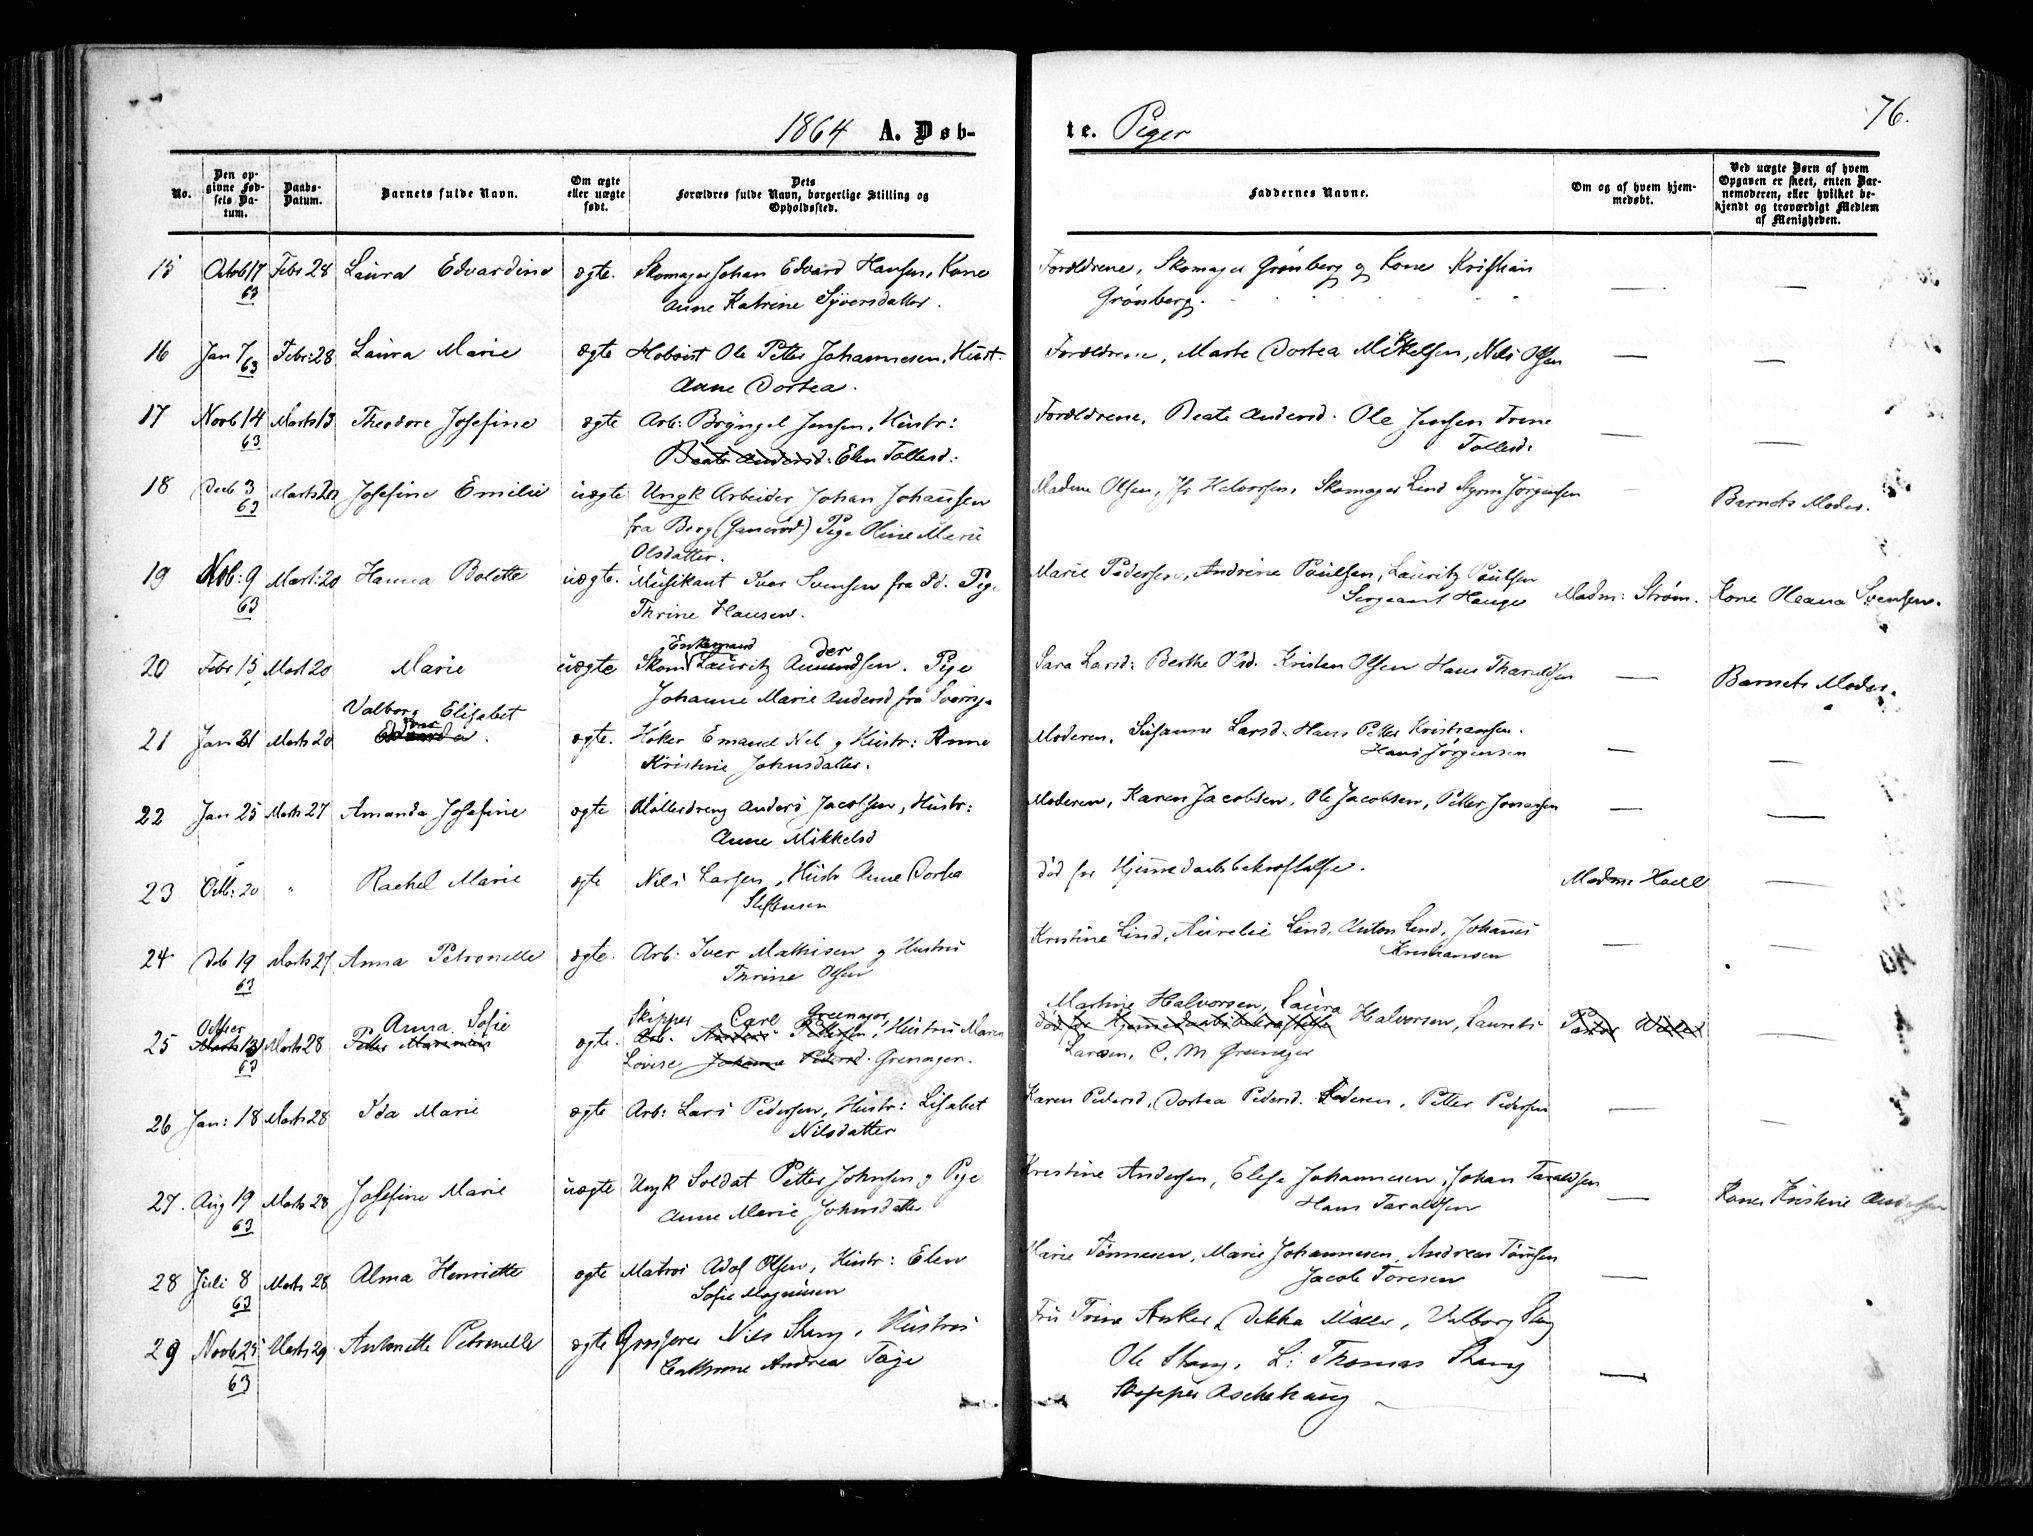 1864 A. Døb-
te. Piger
76.
No.
Den op-
givne Fød-
sels Da-
tum.
Daabs-
Datum.
Barnets fulde Navn.
Om ægte
eller uægte
født.
Dets
Forældres fulde Navn, borgerlige Stilling og
Opholdssted.
Faddernes Navne.
Om og af hvem hjem-
medøbt.
Ved uægte Børn af hvem
Opgaven er skeet, enten Bar-
nemoderen, eller hvilket be-
kjendt og troværdigt Medlem
af Menigheden.
15 Octob 17 Febr 28 Laura Edvardine ægte. Skomager Johan Edvard Hansen, Kone Forældrene, Skomager Grønberg og Kone Kristian
63 Anne Katrine Syversdatter. Grønberg. — —
16 Jan 7/63 Febr: 28 Laura Marie ægte Hoboist Ole Petter Johannesen, Hust: Forældrene, Marte Dortea Mikkelsen, Nils Olsen — —
Anne Dortea.
17 Novb 14 Marts 13 Theodore Josefine ægte Arb: Bryngel Jensen, Hustr: Forældrene, Beate Andersd. Ole Jensen Trine
63 Beate Andersd: Elen Tollesd: Tollesd: — —
18 Decb 3 Marts 20 Josefine Emilie uægte Ungk Arbeider Johan Johansen Madme Olsen, Jfr Halvorsen, Skomager Lind Jørgensen — Barnets Moder.
63 fra Berg Pige Oline Marie
Olsdatter.
19 Nob: 9 Mart: 20 Hanna Bolette uægte. Musikant Iver Svensen fra Pige Marie Pedersen, Andrine Paulsen, Lauritz Paulsen
63 Thrine Hansen. Sergeant Hauge Madm: Strøm. Kone Oleana Svensen.
20 Febr 15 Mart 20 Marie uægte Enkemand Skom Lauritz Amundsen der. Pige Sara Larsd: Berthe Olsd. Kristen Olsen Hans Tharaldsen — Barnets Moder.
Johanne Marie Andersd fra Sverige
Valborg Elisabet
21 Jan 31 Marts 20 ægte. Høker Emanuel Neb og Hustr: Anne Moderen, Susanne Larsd. Hans Petter Kristiansen.
Kristine Johnsdatter. Hans Jørgensen — —
22 Jan 25 Marts 27 Amanda Josefine ægte Møllerdreng Anders Jacobsen, Hustr: Moderen, Karen Jacobsen, Ole Jacobsen, Petter — —
Anne Mikkelsd
23 Octb: 20 " Rachel Marie ægte Nils Larsen, Hustr Anne Dortea død før Hjemmedaabsbekræftelse. Madme —
Steffensen
24 Deb 19 Marts 27 Anna Petronelle ægte. Arb: Iver Mathisen og Hustru Kristine Lind, Aurelie Lind, Anton Lind, Johannes
63 Thrine Olsen Kristiansen — —
25 October Marts 13 Marts 28 Anna Sofie ægte. Skipper Carl Grenager, Hustru Maren Martine Halvorsen, Laura Halvorsen, Laurits
63 Petter Arb: Anders Pettersen død før Hjemmedaabsbekræftelse
Lovise Johanne Pedersd. Grenager. Larsen, C. M Grenager
26 Jan: 18 Marts 28 Ida Marie ægte Arb: Lars Pedersen, Hustr: Lisabet Karen Pedersd, Dortea Pedersd. Petter Pedersen — —
Nilsdatter
27. Aug 19 Marts 28 Josefine Marie uægte Ungk Soldat Petter Johnsen og Pige Kristine Andersen, Elise Johannesen, Johan Taraldsen — Kone Kristine Andersen
63 Anne Marie Johnsdatter Hans Taraldsen
28 Juli 8 Marts 28 Alma Henriette ægte Matros Adof Olsen, Hustr: Elen Marie Tønnesen, Marie Johannesen, Andreas Tønsen
63 Sofie Magnusen Jacob Toresen —
29 Novb 25 Marts 29 Antonette Petronelle ægte Grosserer Nils Stang, Hustru Fru Trine Anker, Dikka Møller, Valborg Stang
63 Cathrine Andrea Toje Ole Stang, L: Thomas Stang —
Skipper Aschehaug